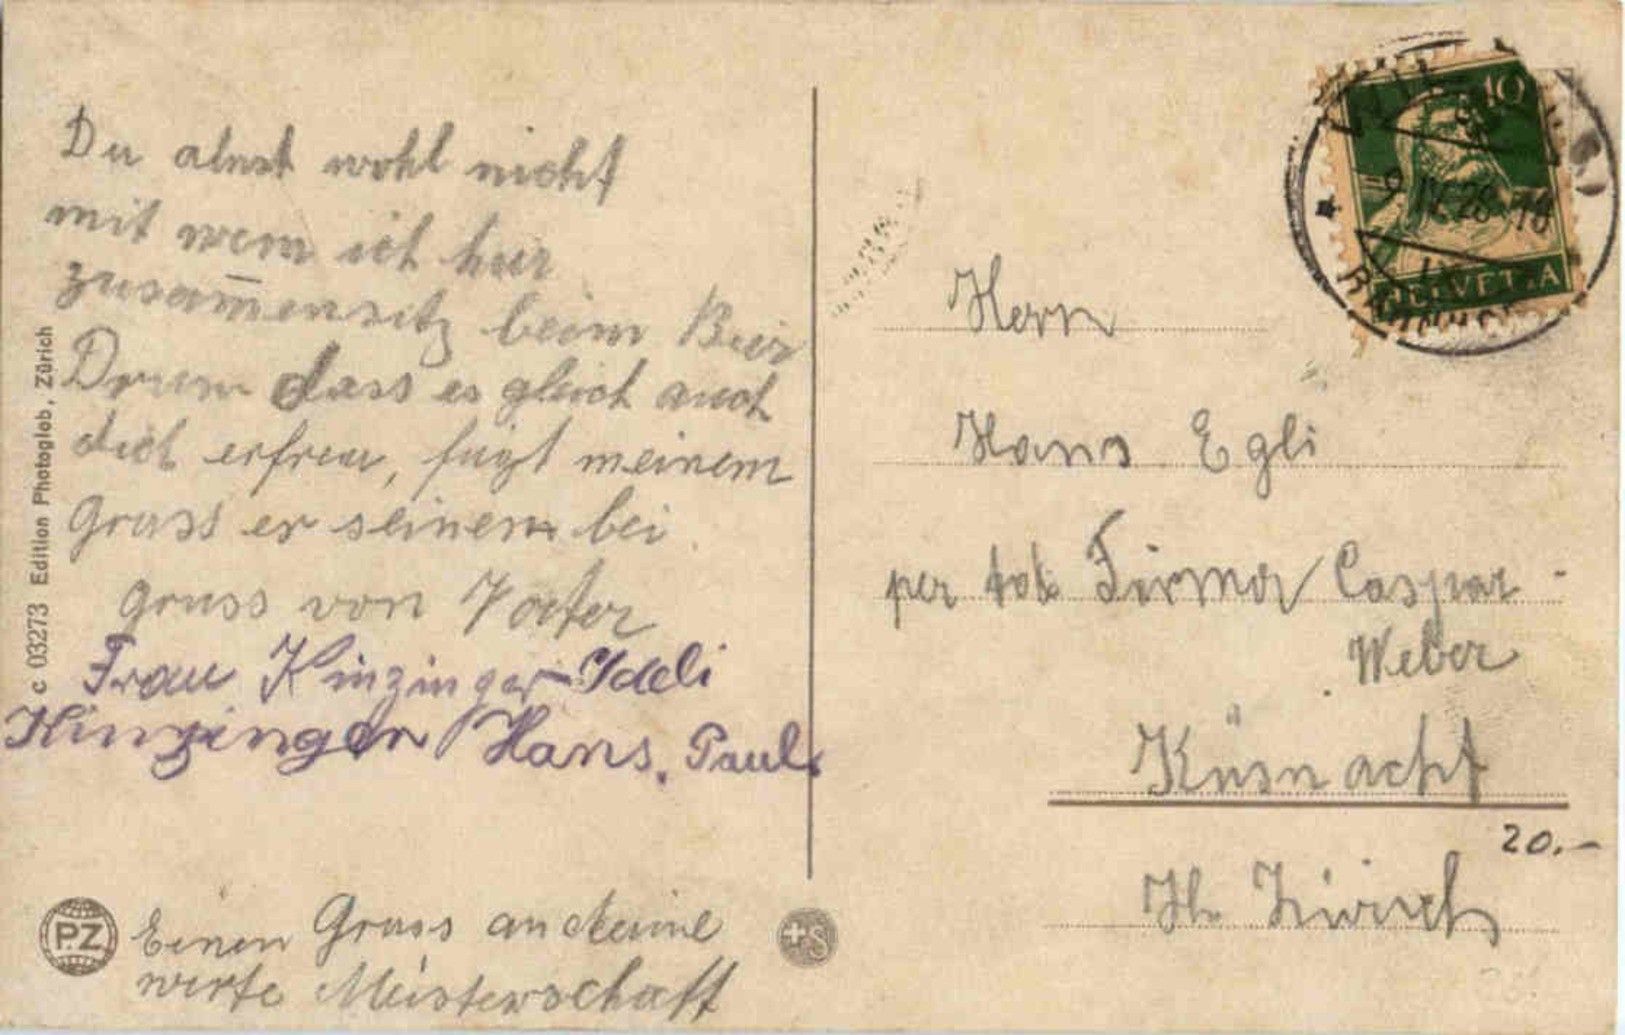 Du ahnst wohl nicht
mit wem ich hier
zusam̅ensitz beim Bier
Drum dass es gleich auch
dich erfreu, fügt meinem
Gruss er seinen bei
Gruss von Vater
Frau Kinzinger Ideli
Kinzinger Hans. Paul.
Einen Gruss an deine
werte Meisterschaft
c 03273 Edition Photoglob, Zürich
PZ
+S
10
HELVETIA
9.IX.26-18
Herrn
Hans Egli
per Firma Caspar
Weber
Küsnacht
20.-
Kt. Zürich